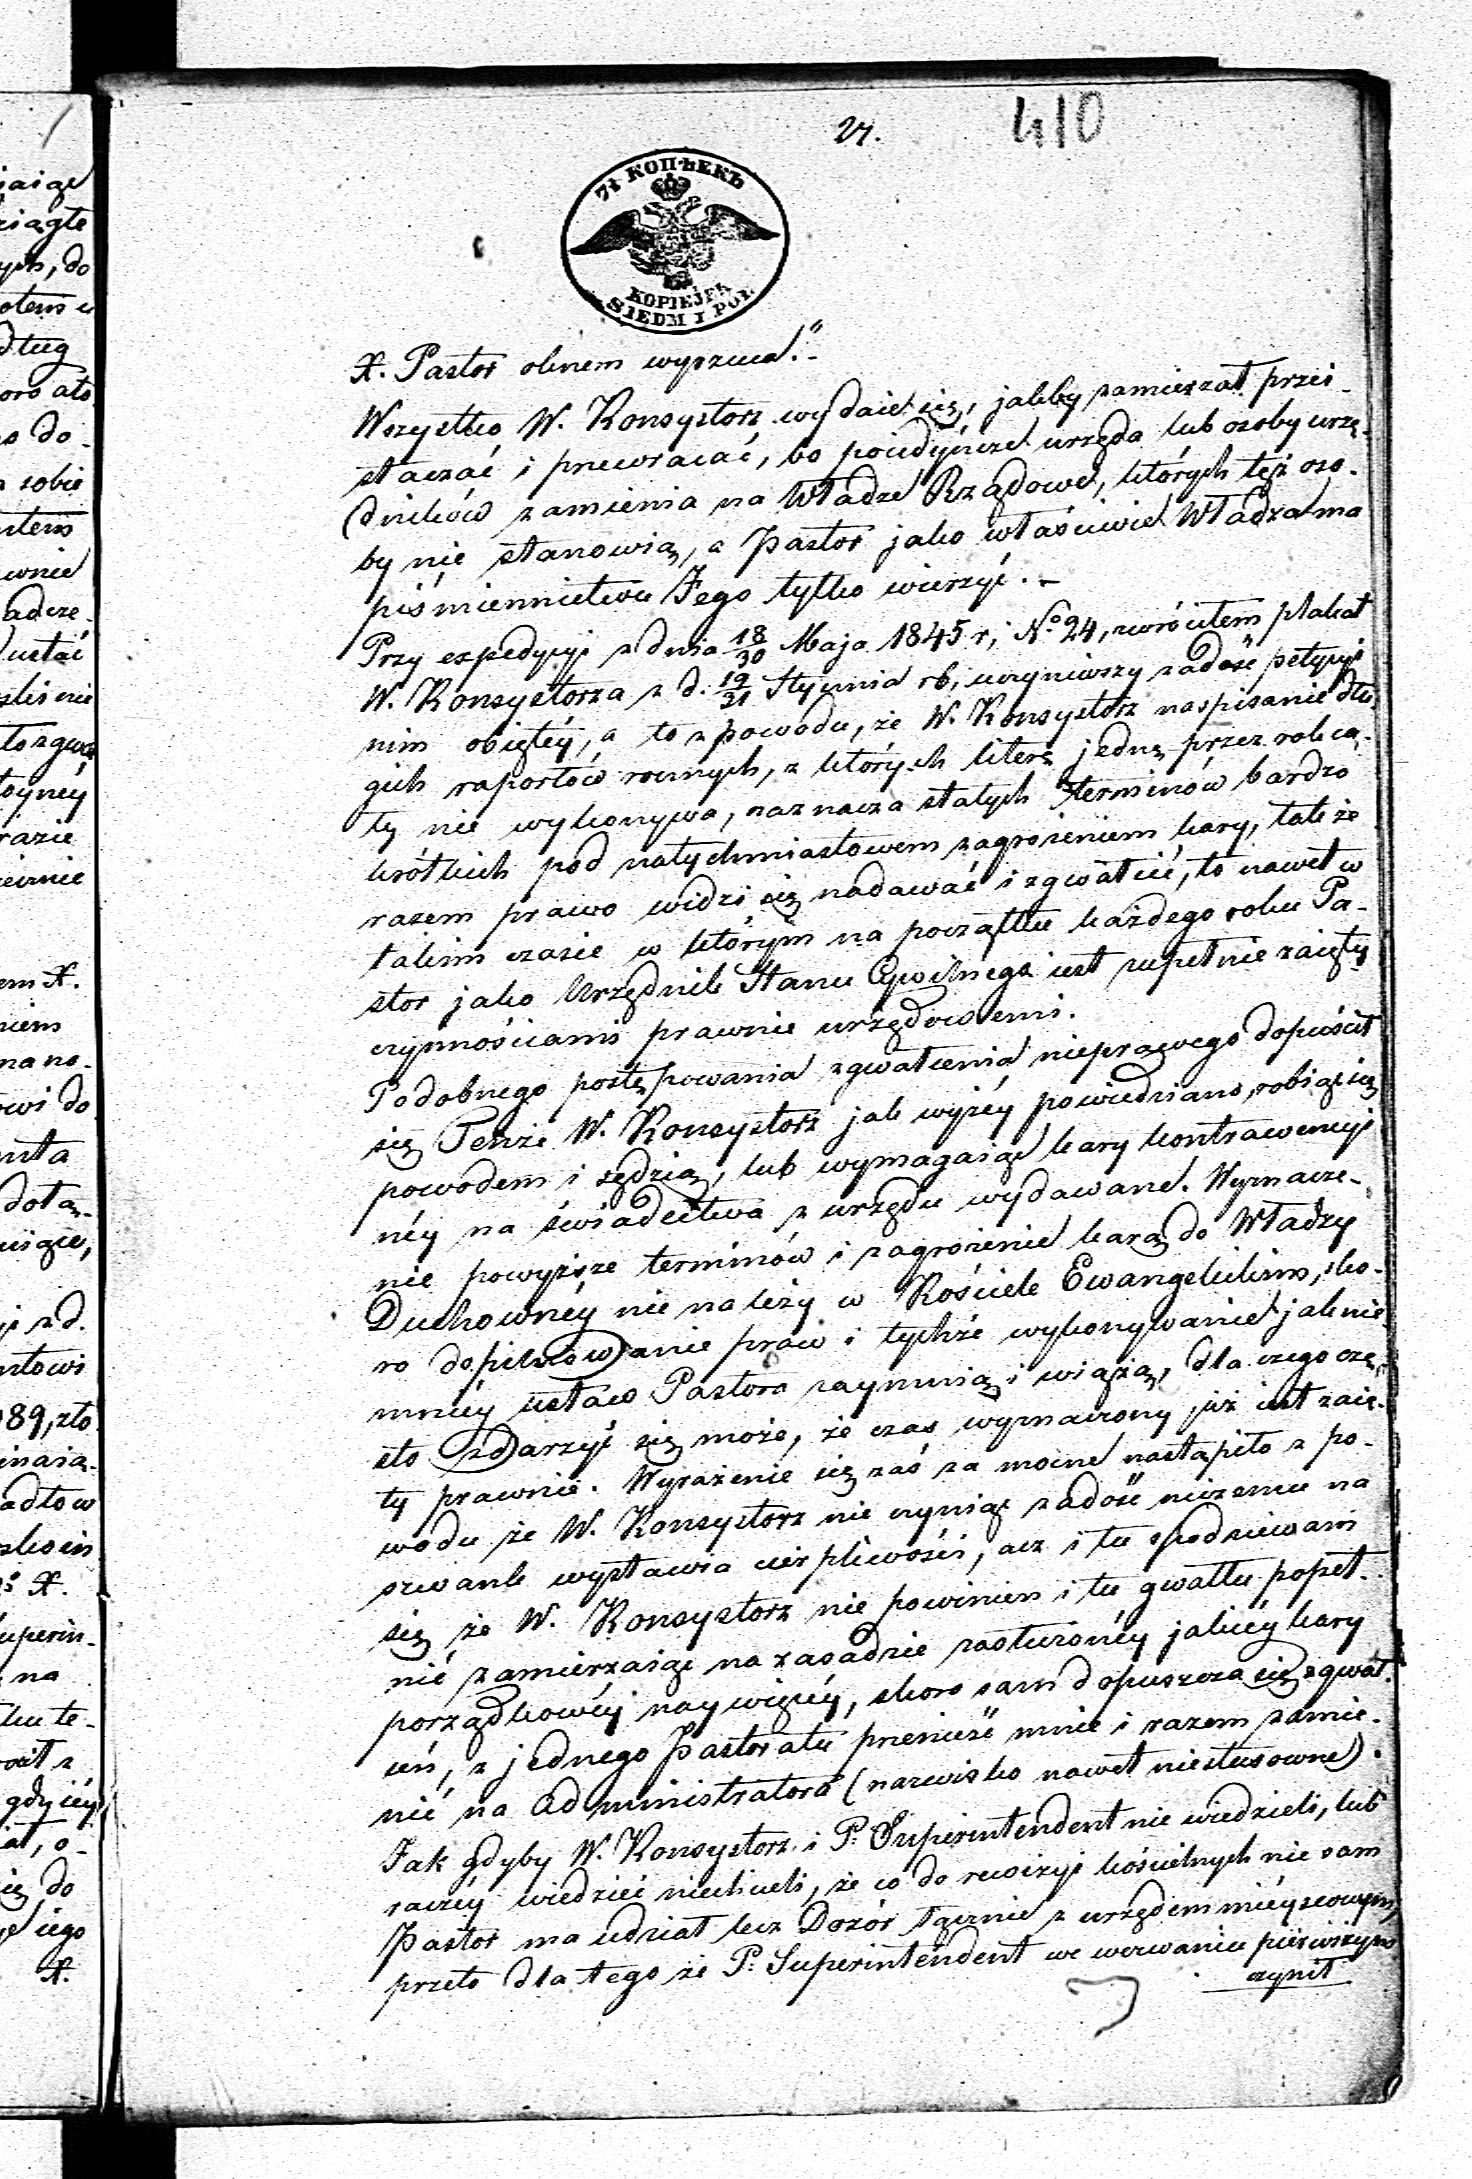 24.
410
7½ КОПѢЕКЪ
KOPIEJEK
SIEDM I PÓŁ
X. Pastor oknem wyrzucał."-
Wszystko W. Konsystorz wydaie się, jakby zamierzał przei-
staczać i przewracać, bo poiedyńcze urzęda lub osoby urzę-
dników zamienia na Władze Rządowe, których też oso-
by nie stanowią, a Pastor jako właściwie Władza ma
piśmiennictwu Jego tylko wierzyć. -
Przy expedycyi z dnia 18/30 Maja 1845 r, N° 24, zwróciłem plakat
W. Konsystorza z d. 19/31 Stycznia rb, uczyniwszy zadość petycyi
nim obiętéy, a to z powodu, że W. Konsystorz na spisanie dłu-
gich raportów rocznych, z których literę jedną przez rok ca-
ły nie wykonywa, naznacza stałych terminów bardzo
krótkich pod natychmiastowem zagrożeniem kary, tak że
razem prawo widzi się nadawać i zgwałcić, to nawet w
takim czasie w którym na początku każdego roku Pa-
stor jako Urzędnik Stanu Cywilnego iest zupełnie zaięty
czynnościami prawnie urzędowemi.
Podobnego postępowania zgwałcenia nieprawego dopuścił
się Tenże W. Konsystorz jak wyżéy powiedziano, robiąc się
powodem i sędzią, lub wymagaiąc kary kontrawencyi-
néy na świadectwa z urzędu wydawane. Wyznacze-
nie powyższe terminów i zagrożenie karą do Władzy
Duchownéy nie należy w Kościele Ewangelickim, sko-
ro dopilnowanie praw i tychże wykonywanie jak nie-
mniéy ustaw Pastora zaymuią i wiążą, dla czego czę-
sto zdarzyć się może, że czas wyznaczony już iest zaię-
ty prawnie. Wyrażenie się zaś za mocne nastąpiło z po-
wodu że W. Konsystorz nie czyniąc zadość niczemu na
szwank wystawia cierpliwości, acz i tu spodziewam
się że W. Konsystorz nie powinien i tu gwałtu popeł-
nić zamierzaiąc na zasadzie zasłużonéy jakiéy kary
porządkowéy naywięcéy, skoro sam dopuszcza się zgwał-
ceń, z jednego Pastoratu przenieść mnie i razem zamie-
nić na Administratora (nazwisko nawet niestosowne).
Jak gdyby W. Konsystorz i P. Superintendent nie wiedzieli, lub
raczéy wiedzieć niechcieli, że co do rewizyi kościelnych nie sam
Pastor ma udział lecz Dozór łącznie z urzędem mieyscowym,
przeto dla tego że P. Superintendent we wezwaniu piérwszym
czynił